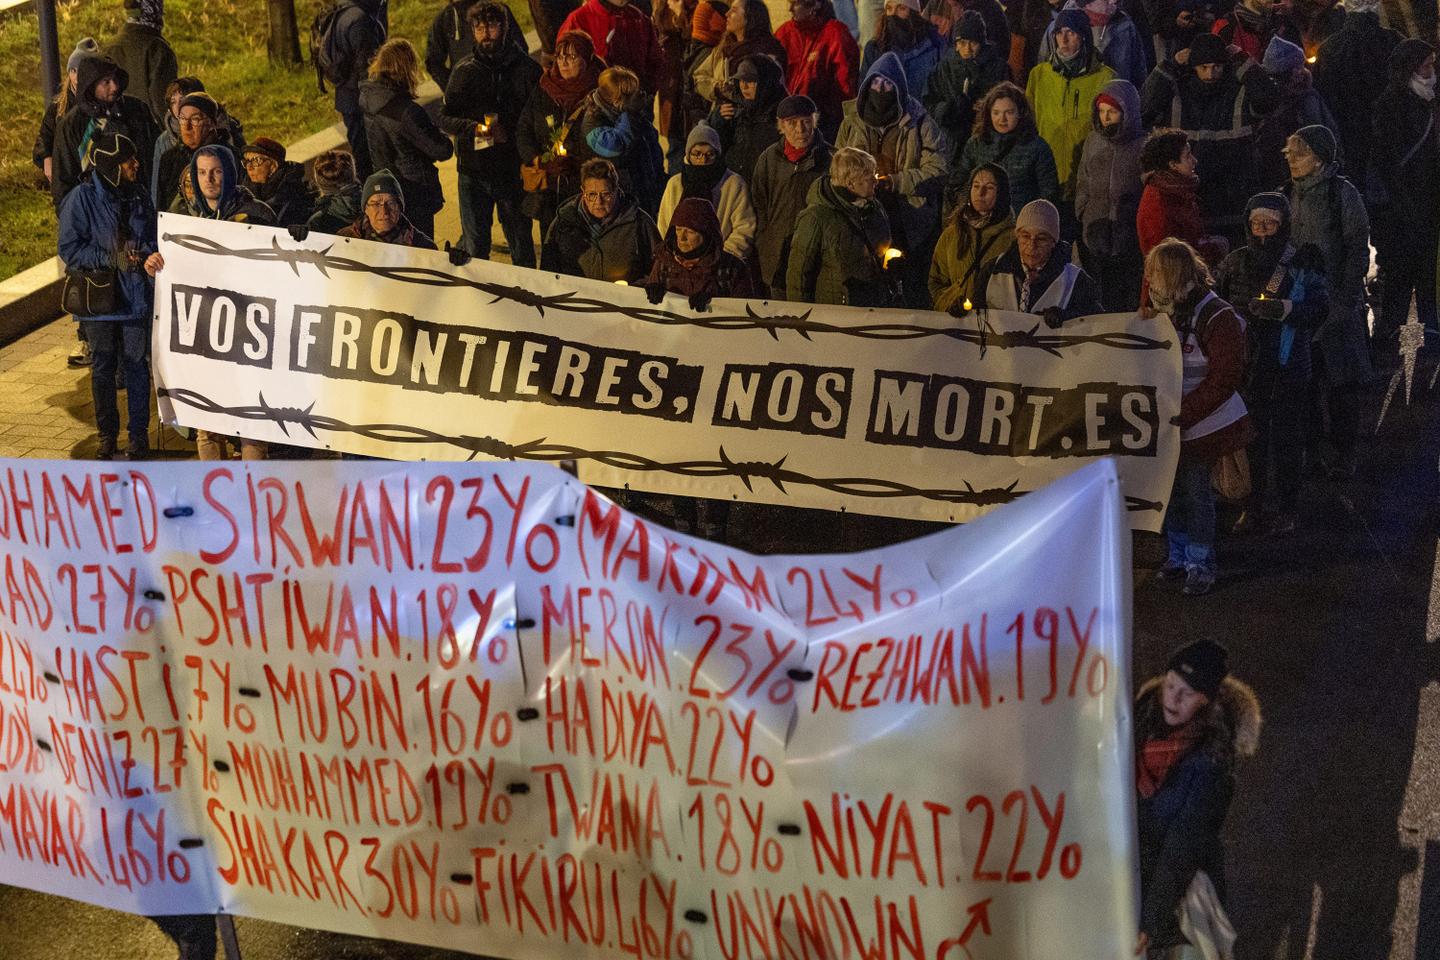 VOS FRONTIERES, NOS MORT.ES
OHAMED - SIRWAN.23Yo - MARIAM 24Yo
AD.27Yo - PSHTIWAN.18Yo - MERON.23Yo - REZHWAN.19Yo
24Yo - HASTI.7Yo - MUBIN.16Yo - HADIYA.22Yo
DENIZ.27Yo - MOHAMMED.19Yo - TWANA.18Yo - NIYAT.22Yo
MAYAR.46Yo - SHAKAR.30Yo - FIKIRU.46Yo - UNKNOWN ♂